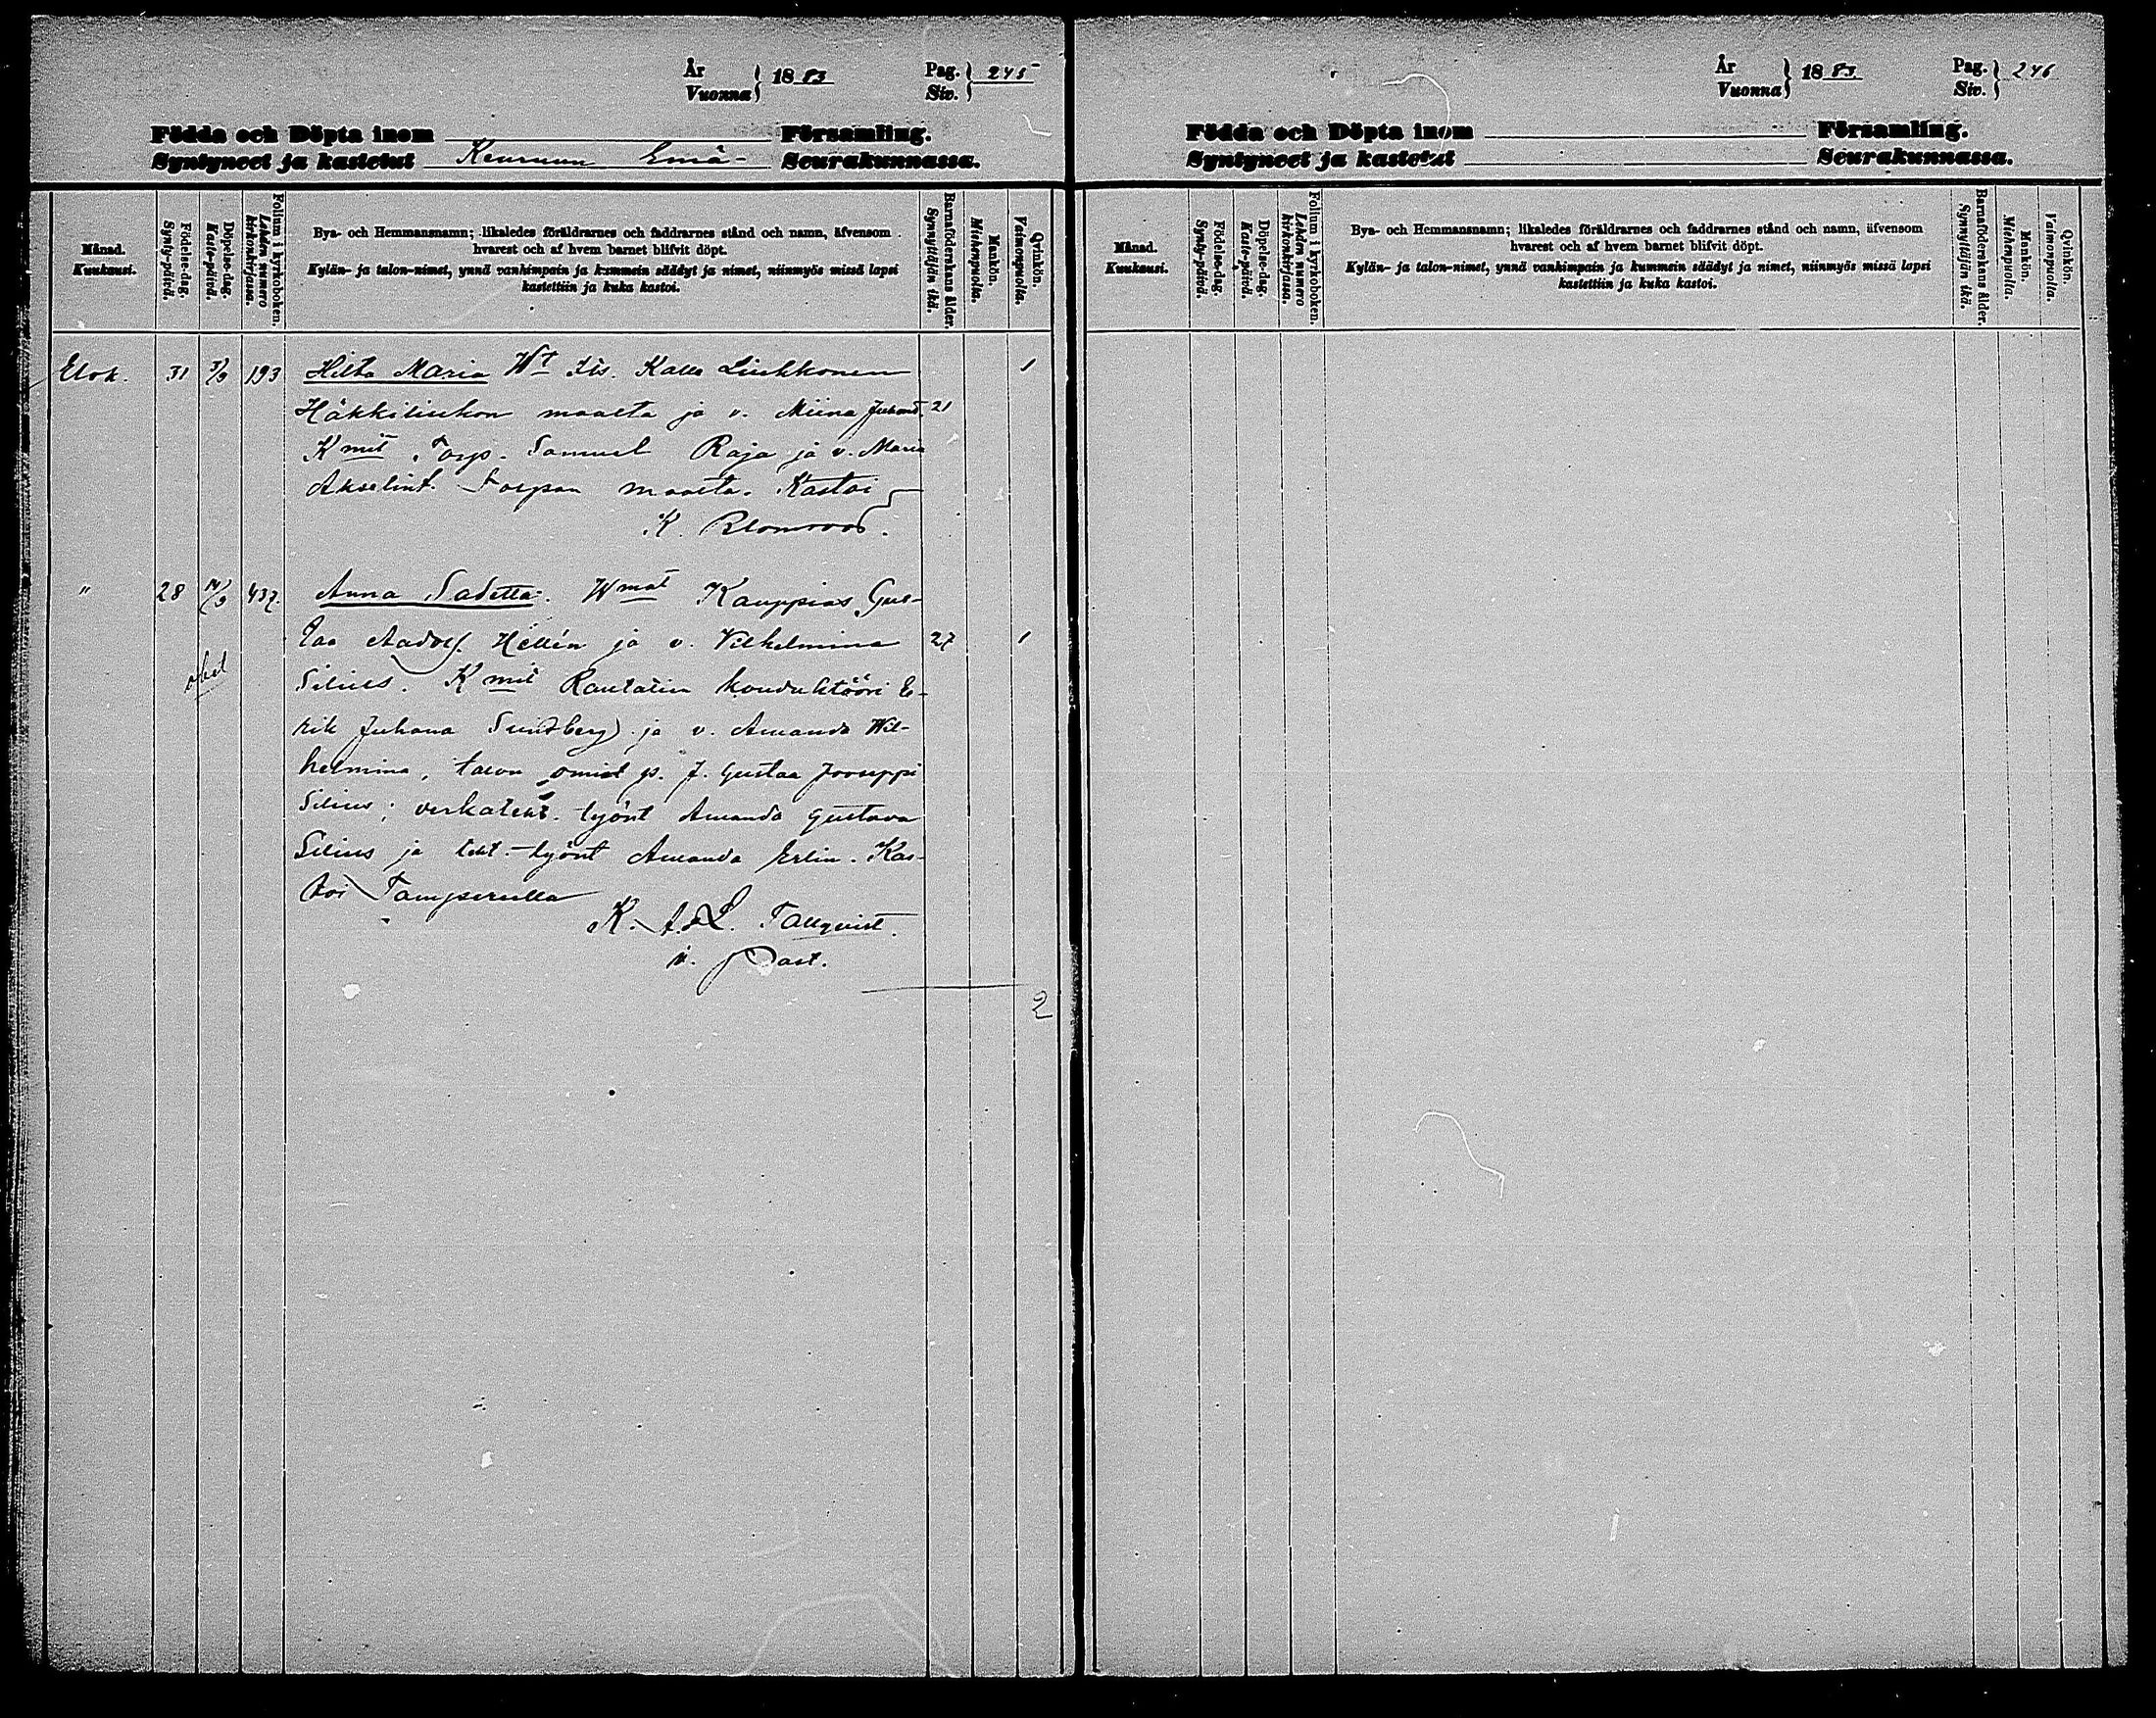 År
Vuonna } 18 83
Pag.
Siv. } 245
Födda och Döpta inom Församling.
Syntyneet ja kastetut Keuruun Emä- Seurakunnassa.
Månad.
Kuukausi.
Födelse-dag.
Synty-päivä.
Döpelse-dag.
Kaste-päivä.
Folium i kyrkoboken.
Lehden numero kirkonkirjassa.
Bya- och Hemmansnamn; likaledes föräldrarnes och faddrarnes stånd och namn, äfvensom
hvarest och af hvem barnet blifvit döpt.
Kylän- ja talon-nimet, ynnä vanhimpain ja kummein säädyt ja nimet, niinmyös missä lapsi
kastettiin ja kuka kastoi.
Barnaföderskans ålder.
Synnyttäjän ikä.
Mankön.
Miehenpuolia.
Qvinkön.
Vaimonpuolia.
Elok. 31 193 Hilta Maria Wt Its. Kalle Liukkonen 1
Häkkiliukon maalta ja v. Miina Juhant. 21
Kmit Torp. Samuel Raja ja v. Maria
Akselint. maalta. Kastoi
K. Blomroos.
" 28 14/9 437. Anna Sadetta. Wmat Kauppias Gus-
taa Aadolf Hellén ja v. Vilhelmina 27 1
obiit
Silius. Kmit Rautatien konduhtööri E-
rik Juhana Sundberg ja v. Amanda Wil-
helmina, talon omist ja. J. Gustaa Jooseppi
Silius; verkateht. työnt Amanda Gustava
Silius ja teht. työnt Amanda Erlin. Kas-
toi Tampereella
K. A. L. Tallqvist.
v. Past.
2
År
Vuonna } 18 83.
Pag.
Siv. } 246
Födda och Döpta inom Församling.
Syntyneet ja kastetut Seurakunnassa.
Månad.
Kuukausi.
Födelse-dag.
Synty-päivä.
Döpelse-dag.
Kaste-päivä.
Folium i kyrkoboken.
Lehden numero kirkonkirjassa.
Bya- och Hemmansnamn; likaledes föräldrarnes och faddrarnes stånd och namn, äfvensom
hvarest och af hvem barnet blifvit döpt.
Kylän- ja talon-nimet, ynnä vanhimpain ja kummein säädyt ja nimet, niinmyös missä lapsi
kastettiin ja kuka kastoi.
Barnaföderskans ålder.
Synnyttäjän ikä.
Mankön.
Miehenpuolia.
Qvinkön.
Vaimonpuolia.